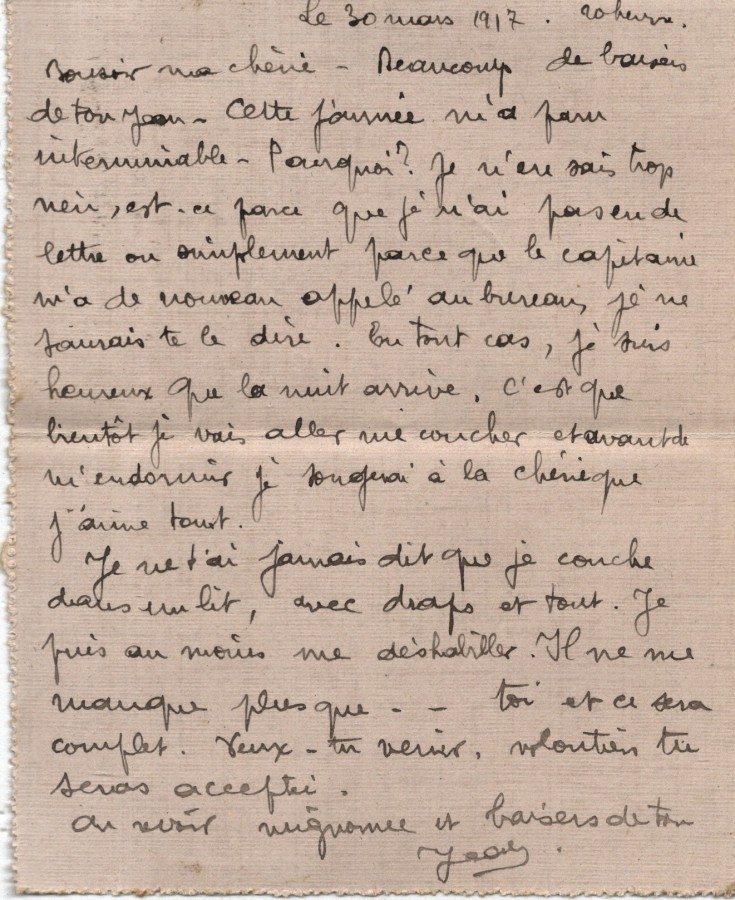 Le 30 mars 1917. 20 heures.
Bonsoir ma chérie - Beaucoup de baisers
de ton Jean - Cette journée m'a paru
interminable - Pourquoi? Je n'en sais trop
rien, est-ce parce que je n'ai pas eu de
lettre ou simplement parce que le capitaine
m'a de nouveau appelé au bureau, je ne
saurais te le dire. En tout cas, je suis
heureux que la nuit arrive, c'est que
bientôt je vais aller me coucher et avant de
m'endormir je songerai à la chérie que
j'aime tant.
Je ne t'ai jamais dit que je couche
dans un lit, avec draps et tout. Je
puis au moins me déshabiller. Il ne me
manque plus que - - toi et ce sera
complet. Veux-tu venir, volontiers tu
seras acceptée.
Au revoir mignonne et baisers de ton
Jean.